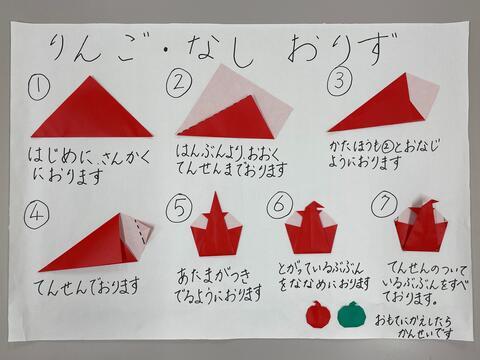 りんご・なし おりず
①
はじめに、さんかく
におります
②
はんぶんより、おおく
てんせんまでおります
③
かたほうも②とおなじ
ようにおります
④
てんせんでおります
⑤
あたまがつき
でるようにおります
⑥
とがっているぶぶん
をななめにおります
⑦
てんせんのついて
いるぶぶんをすべ
ており​ます。
おもてにかえしたら
かんせいです